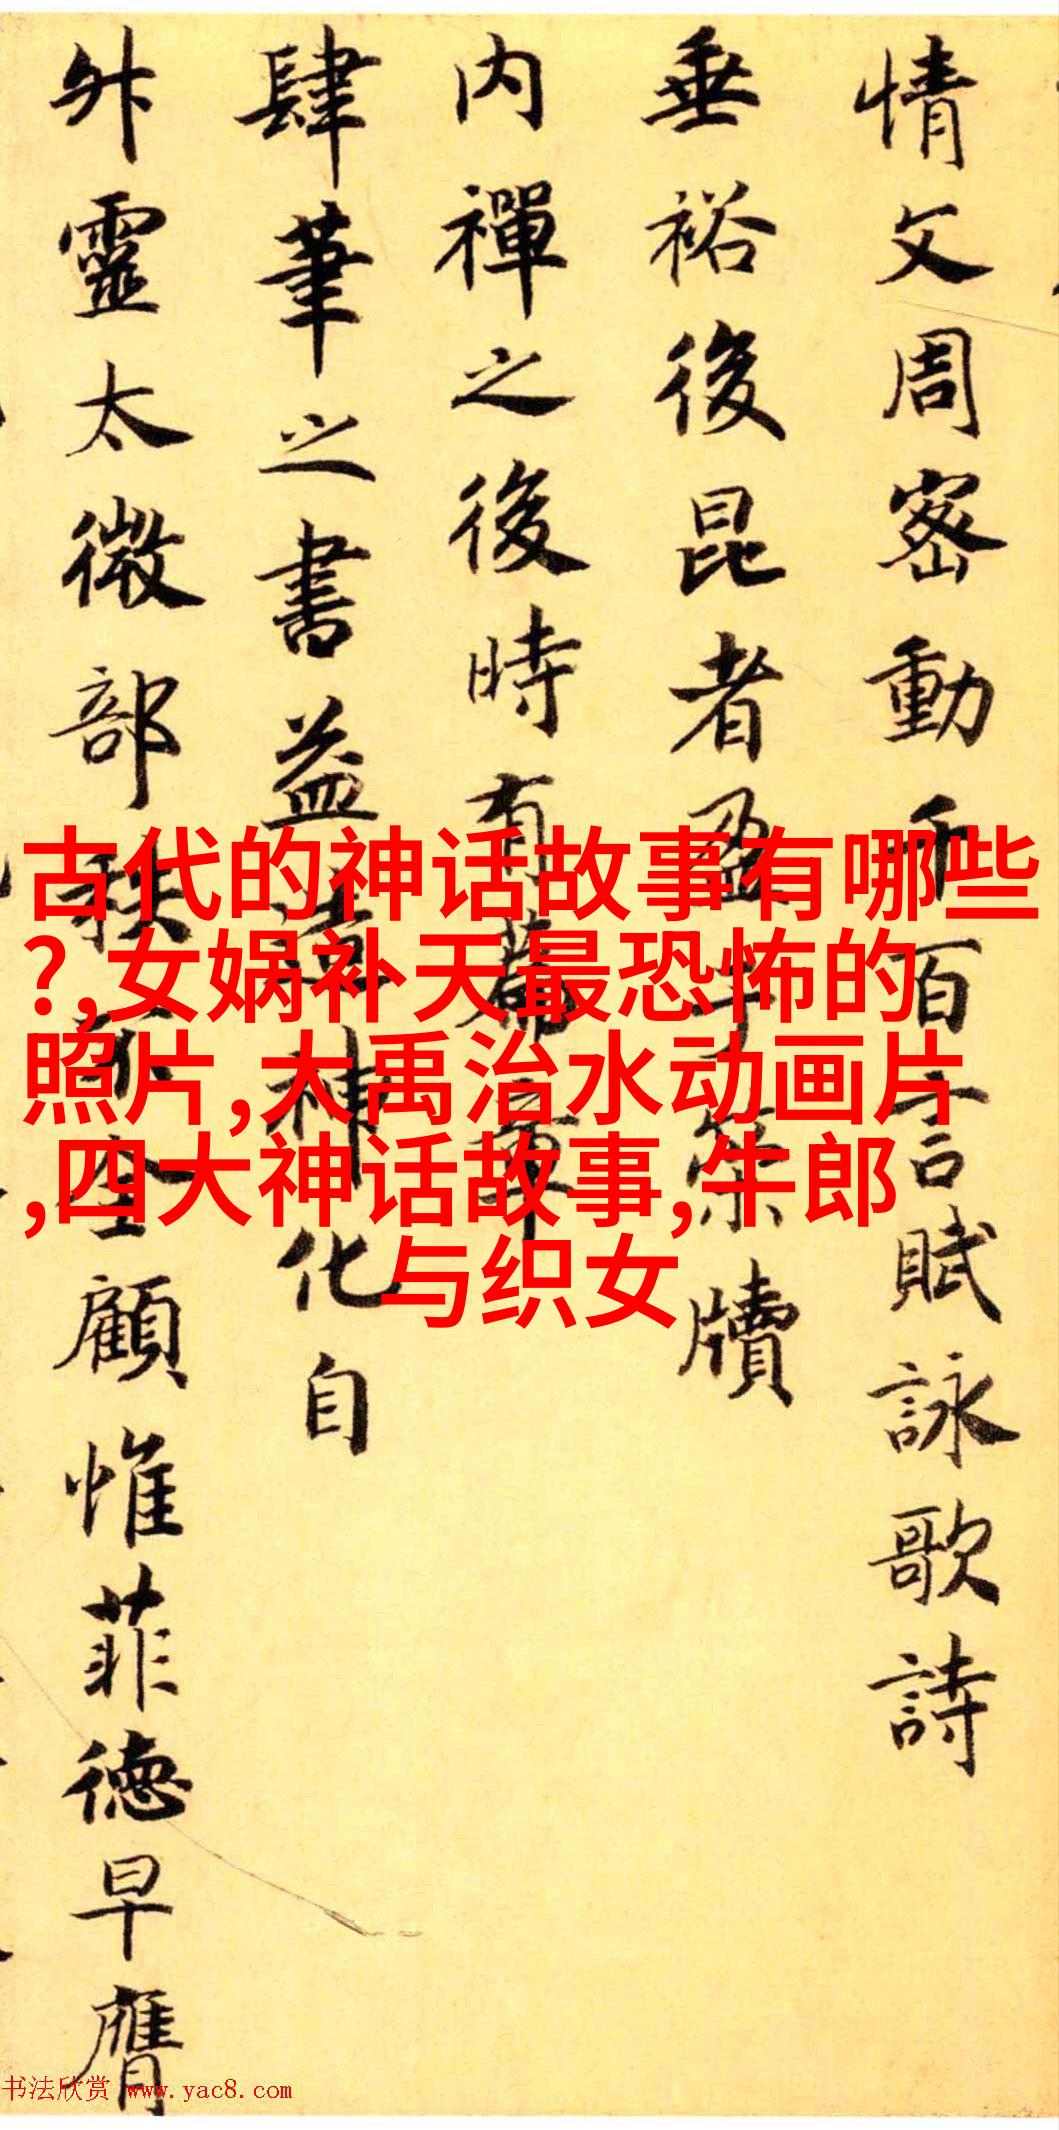 情文周密動千百言賦詠歌詩
垂裕後昆者盈于策牘
内禪之後時有篇章
肆筆之書益造神化自
升靈太微部秩空顧惟菲德早膺
古代的神话故事有哪些
?,女娲补天最恐怖的
照片,大禹治水动画片
,四大神话故事,牛郎
与织女
书法欣赏 www.yac8.com